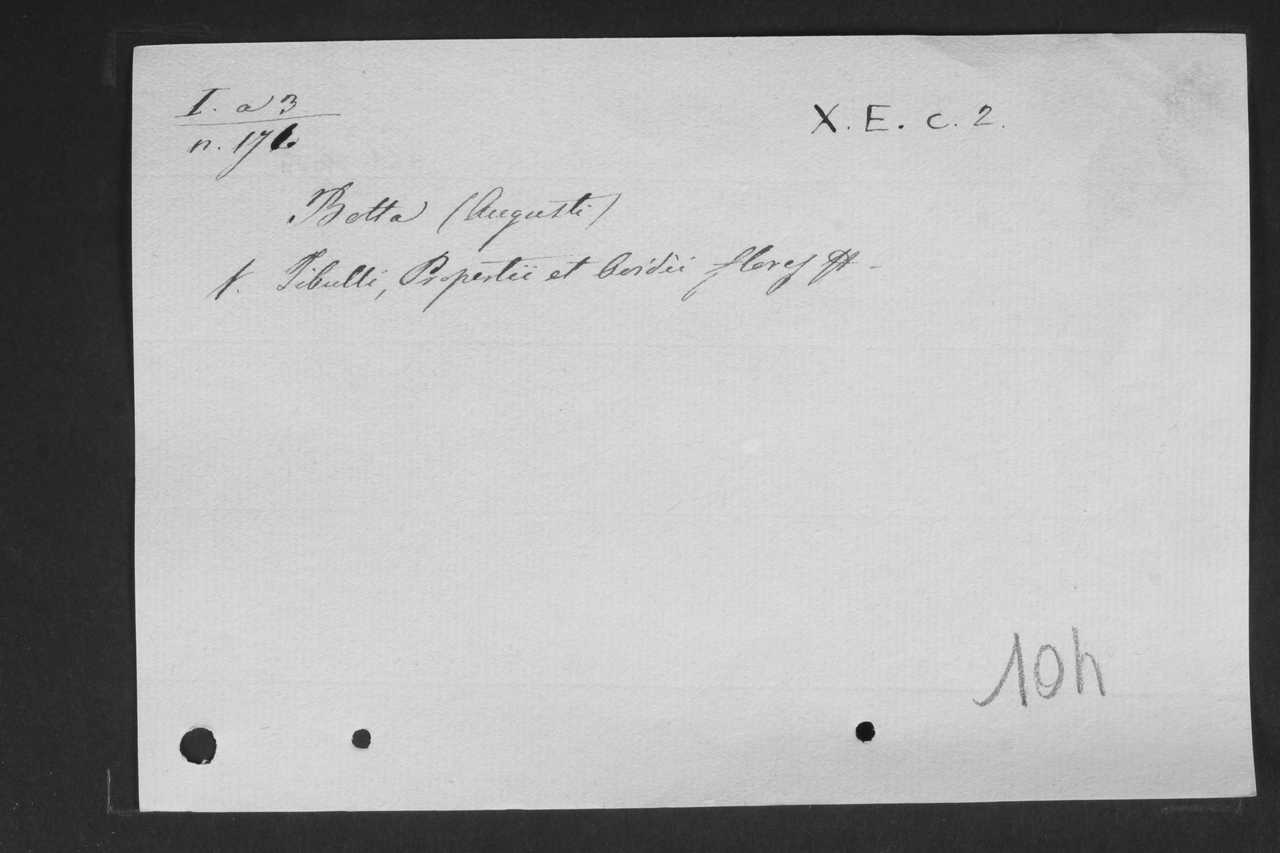 I. a 3
n. 176
X. E. c. 2.
Botta (Augusti)
1. Tibulli, Propertii et Ovidii flores
10h